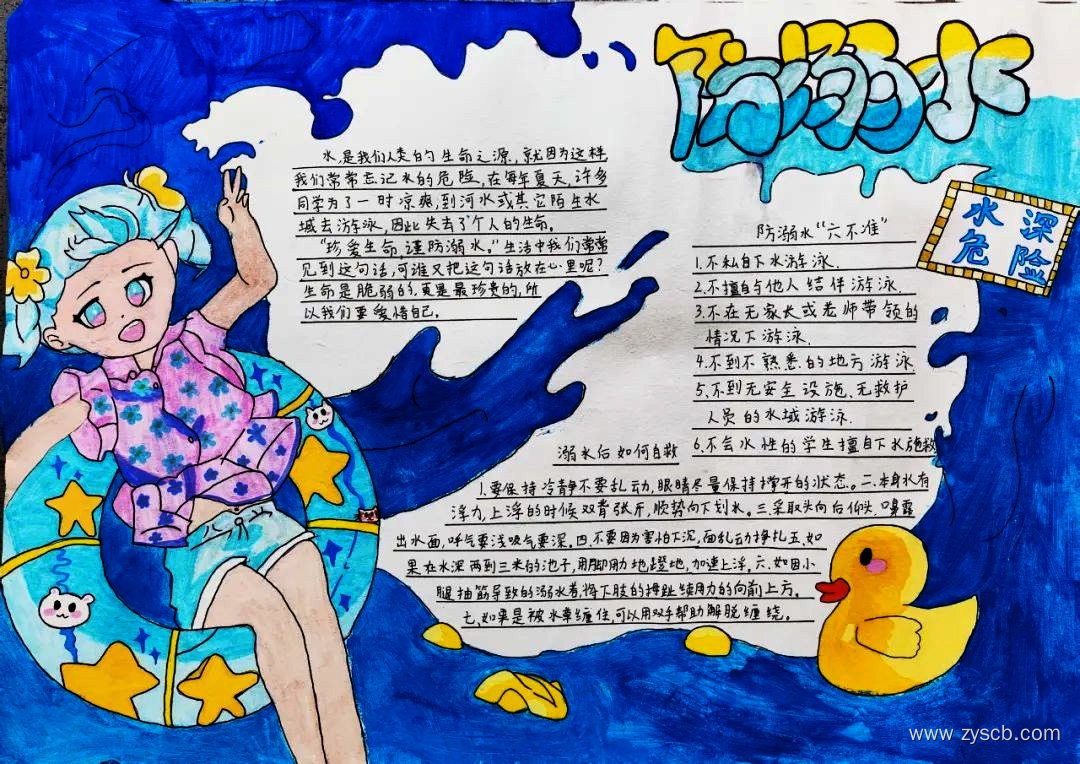 防溺水
水深
危险
水,是我们人类的生命之源,就因为这样
我们常常忘记水的危险,在每年夏天,许多
同学为了一时凉爽,到河水或其它陌生水
域去游泳,因此失去了个人的生命。
"珍爱生命,谨防溺水。"生活中我们常常
见到这句话,可谁又把这句话放在心里呢?
生命是脆弱的,更是最珍贵的,所
以我们要爱惜自己。
防溺水"六不准"
1.不私自下水游泳.
2.不擅自与他人结伴游泳.
3.不在无家长或老师带领的
情况下游泳.
4.不到不熟悉的地方游泳
5.不到无安全设施、无救护
人员的水域游泳.
6.不会水性的学生擅自下水施救
溺水后如何自救
1.要保持冷静不要乱动,眼睛尽量保持撑开的状态。二.本身水有
浮力,上浮的时候双臂张开,顺势向下划水。三.采取头向后仰头,口鼻露
出水面,呼气要浅吸气要深。四.不要因为害怕下沉,而乱动挣扎五.如
果在水深两到三米的池子,用脚用力地蹬地,加速上浮。六.如因小
腿抽筋导致的溺水者,将下肢的拇趾续用力的向前上方。
七.如果是被水草缠住,可以用双手帮助解脱缠绕。
www.zyscb.com